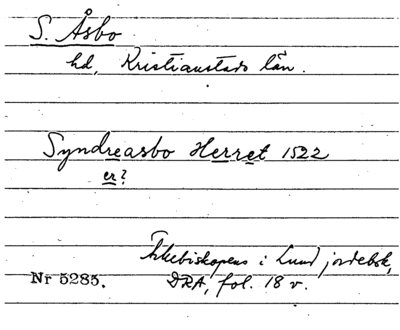 S. Åsbo
hd, Kristianstads län.
Syndreasbo Herret 1522
er?
Ärkebiskopens i Lund jordebok,
Nr 5285. DRA, fol. 18 v.